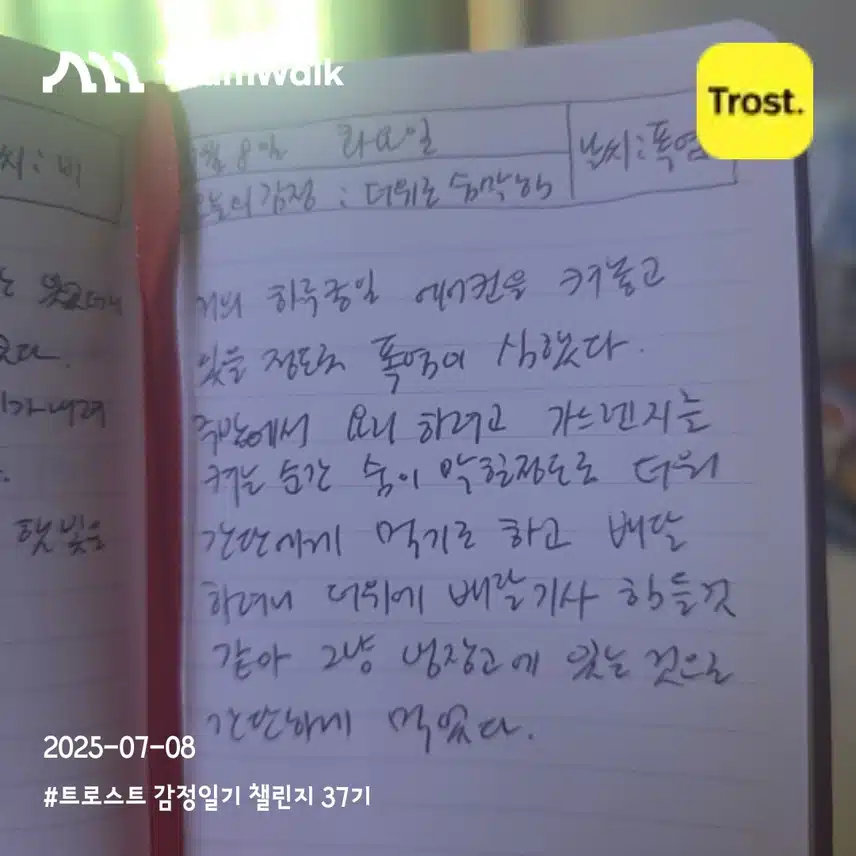 Teamwalk
Trost.
치: 비
월 8일 화요일
날씨: 폭염
오늘의 감정 : 더위로 숨막혀
거의 하루종일 에어컨을 켜놓고
있을 정도로 폭염이 심했다.
주방에서 요리 하려고 가스렌지를
켜는 순간 숨이 막힐정도로 더워
간단하게 먹기로 하고 배달
하려니 더위에 배달기사 힘들것
같아 그냥 냉장고에 있는 것으로
간단하게 먹었다.
가 내려
햇빛을
2025-07-08
#트로스트 감정일기 챌린지 37기